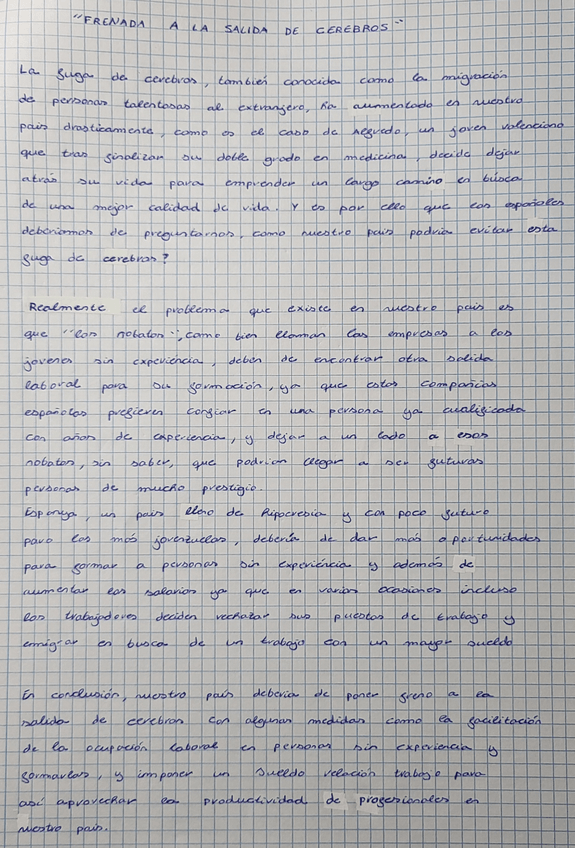 "FRENADA A LA SALIDA DE CEREBROS"
La fuga de cerebros, también conocida como la migración
de personas talentosas al extranjero, ha aumentado en nuestro
país drasticamente, como es el caso de un joven valenciano
que tras finalizar su doble grado en medicina, decide dejar
atrás su vida para emprender un largo camino en busca
de una mejor calidad de vida. Y es por ello que los españoles
deberiamos de preguntarnos, como nuestro país podría evitar esta
fuga de cerebros?
Realmente el problema que existe en nuestro país es
que "los nobatos", como bien llaman las empresas a los
jovenes sin experiencia, deben de encontrar otra salida
laboral para su formación, ya que estas compañias
españolas prefieren confiar en una persona ya cualificada
con años de experiencia, y dejar a un lado a esos
nobatos, sin saber, que podrian llegar a ser futuras
personas de mucho prestigio.
Espanya, un país lleno de hipocresia y con poco futuro
para los más jovenzuelos, debería de dar más oportunidades
para formar a personas sin experiéncia y además de
aumentar los salarios ya que en varias ocasiones incluso
los trabajadores deciden rechazar sus puestos de trabajo y
emigrar en busca de un trabajo con un mayor sueldo
En conclusión, nuestro país deberia de poner freno a la
salida de cerebros con algunas medidas como la facilitación
de la ocupación laboral en personas sin experiencia y
formarlas, y imponer un sueldo relación trabajo para
así aprovechar la productividad de profesionales en
nuestro país.